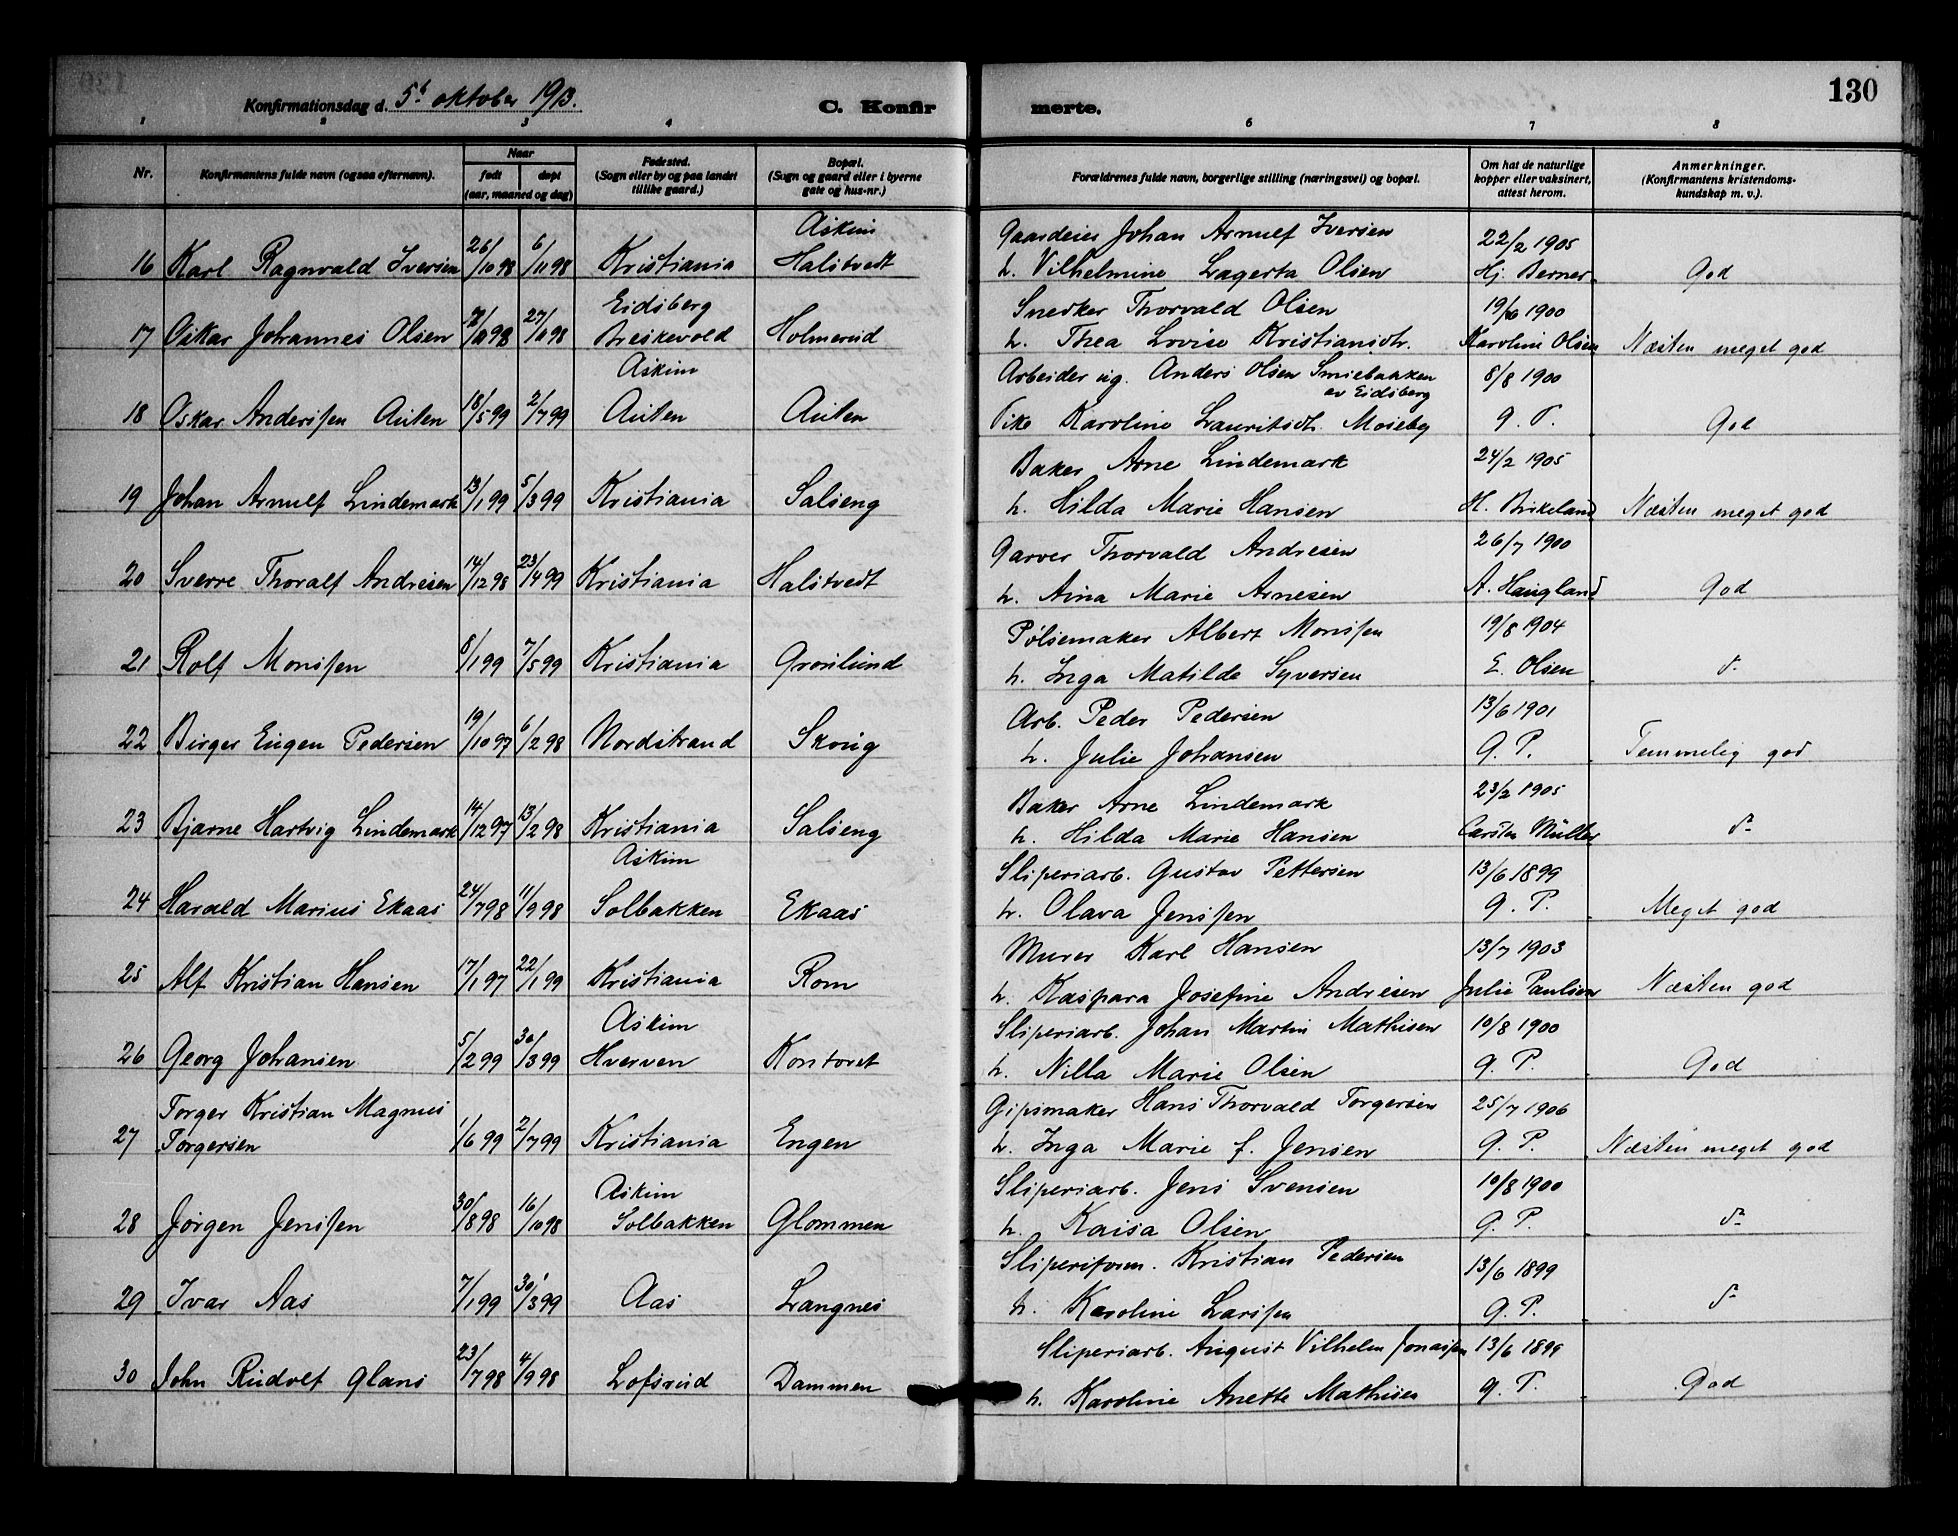 130
Konfirmationsdag d. 5t oktober 1913. C. Konfirmerte.
1 2 3 4 6 7 8
Nr. Konfirmantens fulde navn (ogsaa efternavn). Naar født døpt (aar, maaned og dag) Fødested. (Sogn eller by og paa landet tillike gaard.) Bopæl. (Sogn og gaard eller i byerne gate og hus-nr.) Forældrenes fulde navn, borgerlige stilling (næringsvei) og bopæl. Om hat de naturlige kopper eller vaksinert, attest herom. Anmerkninger. (Konfirmantens kristendomskundskap m. v.).
Askim Gaardeier Johan Arnulf Iversen 22/2 1905
16 Karl Ragnvald Iversen 26/10 98 6/11 98 Kristiania Halstvedt h. Vilhelmine Lagerta Olsen Hj. Berner God
Eidsberg Snedker Thorvald Olsen 19/6 1900
17 Oskar Johannes Olsen 98 27/ 98 Breskevold Holmerud h. Thea Lovise Kristiansdtr. Karoline Olsen Næsten meget god
Askim Arbeider ug. Anders Olsen Smiebakken 8/8 1900
av Eidsberg
18 Oskar Anderssen Auten 18/5 99 2/7 99 Auten Auten Pike Karoline Lauritsdtr. Moseby g. P. God
Baker Arne Lindemark 24/2 1905
19 Johan Arnulf Lindemark 13/1 99 5/3 99 Kristiania Salseng h. Hilda Marie Hansen H. Birkeland Næsten meget god
Garver Thorvald Andresen 26/7 1900
20 Sverre Thoralf Andresen 14/12 98 23/4 99 Kristiania Halstvedt h. Aina Marie Arnesen A. Haugland God
Pølsemaker Albert Monssen 19/8 1904
21 Rolf Monssen 8/1 99 7/5 99 Kristiania Grønlund h. Inga Matilde Syversen E. Olsen d-
Arb. Peder Pedersen 13/6 1901
22 Birger Eugen Pedersen 19/10 97 6/2 98 Nordstrand Skoug h. Julie Johansen g. P. Temmelig god
Baker Arne Lindemark 23/2 1905
23 Bjarne Hartvig Lindemark 14/12 97 13/2 98 Kristiania Salseng h. Hilda Marie Hansen Carsten Müller d-
Askim Sliperiarb. Gustav Pettersen 13/6 1899
24 Harald Marius Ekaas 24/7 98 11/9 98 Solbakken Ekaas h. Olava Jenssen g. P. Meget god
Murer Karl Hansen 13/7 1903
25 Alf Kristian Hansen 17/1 97 22/1 99 Kristiania Rom h. Kaspara Josefine Andresen Julie Paulsen Næsten god
Askim Sliperiarb. Johan Martin Mathisen 10/8 1900
26 Georg Johansen 5/2 99 30/3 99 Hverven Kontoret h. Nilla Marie Olsen g. P. God
Torger Kristian Magnus Gipsmaker Hans Thorvald Torgersen 25/7 1906
27 Torgersen 1/6 99 2/7 99 Kristiania Engen h. Inga Marie f. Jensen g. P. Næsten meget god
Askim Sliperiarb. Jens Svensen 10/8 1900
28 Jørgen Jenssen 30/8 98 16/10 98 Solbakken Glommen h. Kaisa Olsen g. P. d-
Sliperiform. Kristian Pedersen 13/6 1899
29 Ivar Aas 7/1 99 30/3 99 Aas Langnes h. Karoline Larssen g. P. d-
Sliperiarb. August Vilhelm Jonassen 13/6 1899
30 John Rudolf Glans 23/7 98 4/9 98 Løfsrud Dammen h. Karoline Anette Mathisen g. P. God